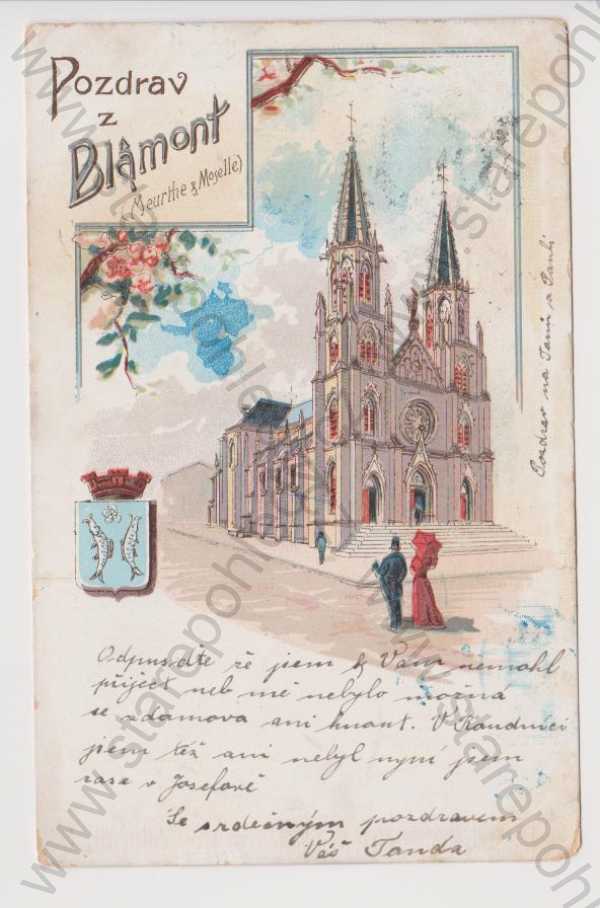 Pozdrav
z
Blâmont
(Meurthe & Moselle)
Pozdrav na Tani a Pauli
Odpusdte že jsem k Vam nemohl
přiject neb mě nebylo možná
se z domova ani hnout. V Roudnici
jsem též ani nebyl nyní jsem
zase v Josefově
Se srdečným pozdravem
Váš Tonda
www.starepohledy